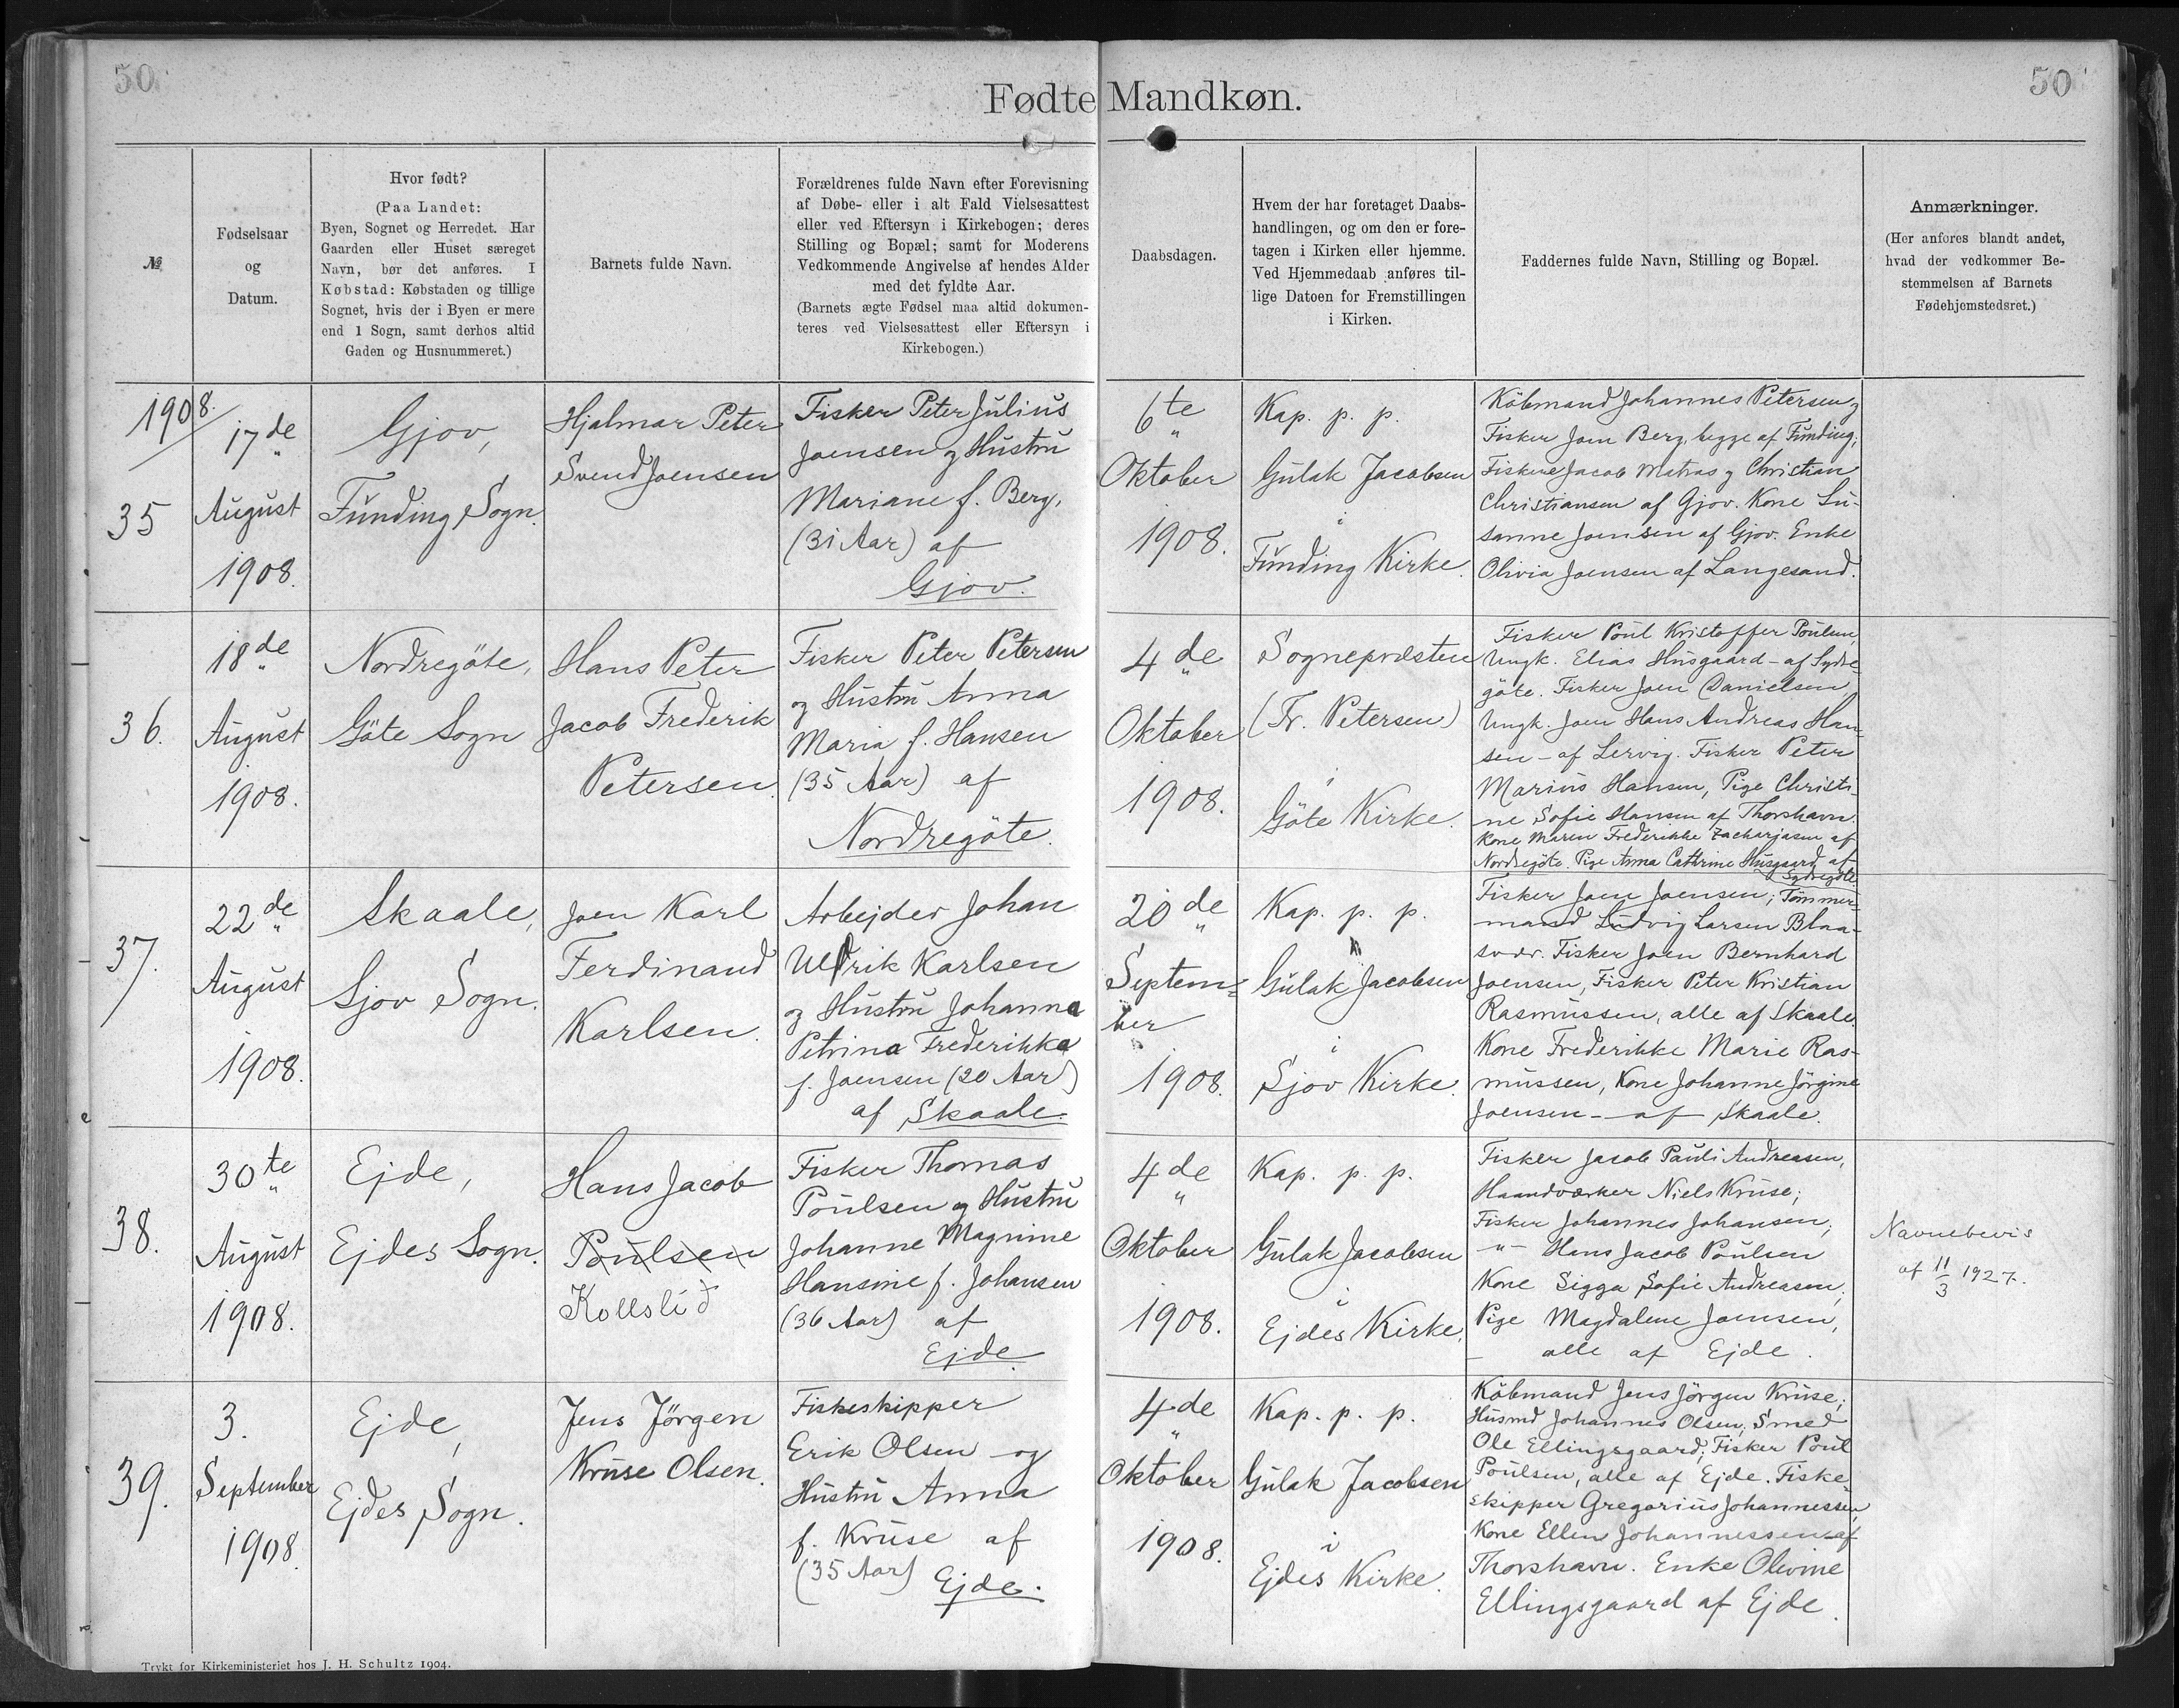 50
50
Fødte Mandkøn.
№
Fødselsaar
og
Datum.
Hvor født?
(Paa Landet:
Byen, Sognet og Herredet. Har
Gaarden eller Huset særeget
Navn, bør det anføres. I
Købstad: Købstaden og tillige
Sognet, hvis der i Byen er mere
end 1 Sogn, samt derhos altid
Gaden og Husnummeret.)
Barnets fulde Navn.
Forældrenes fulde Navn efter Forevisning
af Døbe- eller i alt Fald Vielsesattest
eller ved Eftersyn i Kirkebogen; deres
Stilling og Bopæl; samt for Moderens
Vedkommende Angivelse af hendes Alder
med det fyldte Aar.
(Barnets ægte Fødsel maa altid dokumen-
teres ved Vielsesattest eller Eftersyn i
Kirkebogen.)
Daabsdagen.
Hvem der har foretaget Daabs-
handlingen, og om den er fore-
tagen i Kirken eller hjemme.
Ved Hjemmedaab anføres til-
lige Datoen for Fremstillingen
i Kirken.
Faddernes fulde Navn, Stilling og Bopæl.
Anmærkninger.
(Her anføres blandt andet,
hvad der vedkommer Be-
stemmelsen af Barnets
Fødehjemstedsret.)
1908.
35
17de
August
1908.
Gjov,
Funding Sogn.
Hjalmar Peter
Svend Joensen
Fisker Peter Julius
Joensen og Hustru
Mariane f. Berg,
(31 Aar) af
Gjov.
6te
Oktober
1908.
Kap. p. p.
Gulak Jacobsen
i
Funding Kirke.
Köbmand Johannes Petersen og
Fisker Joen Berg, begge af Funding;
Fiskere Jacob Matras og Christian
Christiansen af Gjov. Kone Su-
sanne Joensen af Gjov. Enke
Olivia Joensen af Langesand.
36.
18de
August
1908.
Nordregöte,
Göte Sogn
Hans Peter
Jacob Frederik
Petersen.
Fisker Peter Petersen
og Hustru Anna
Maria f. Hansen
(35 Aar) af
Nordregöte.
4de
Oktober
1908.
Sognepræsten
(Fr. Petersen)
i
Göte Kirke.
Fisker Poul Kristoffer Poulsen,
Ungk. Elias Husgaard - af Sydre
göte. Fisker Joen Danielsen,
Ungk. Joen Hans Andreas Han-
sen - af Lervig. Fisker Peter
Marius Hansen, Pige Christi-
ne Sofie Hansen af Thorshavn.
Kone Maren Frederikke Zacharjasen af
Nordregöte. Pige Anna Cathrine Husgaard af
Sydregöte.
37.
22de
August
1908.
Skaale,
Sjov Sogn.
Joen Karl
Ferdinand
Karlsen.
Arbejder Johan
Uldrik Karlsen
og Hustru Johanna
Petrina Frederikka
f. Joensen (20 Aar)
af Skaale.
20de
Septem-
ber
1908.
Kap. p. p.
Gulak Jacobsen
i
Sjov Kirke.
Fisker Joen Joensen; Tömmer-
mand Ludvig Larsen Blaa-
svær. Fisker Joen Bernhard
Joensen, Fisker Peter Kristian
Rasmussen, alle af Skaale.
Kone Frederikke Marie Ras-
mussen, Kone Johanne Jörgine
Joensen - af Skaale.
38.
30te
August
1908.
Ejde,
Ejdes Sogn.
Hans Jacob
Poulsen
Kollslið
Fisker Thomas
Poulsen og Hustru
Johanne Magnine
Hansine f. Johansen
(36 Aar) af
Ejde.
4de
Oktober
1908.
Kap. p. p.
Gulak Jacobsen
i
Ejdes Kirke.
Fisker Jacob Pauli Andreasen,
Haandværker Niels Kruse;
Fisker Johannes Johansen;
-"- Hans Jacob Poulsen
Kone Sigga Sofie Andreasen,
Pige Magdalene Joensen,
alle af Ejde.
Navnebevis
af 11/3 1927.
39.
3.
September
1908.
Ejde,
Ejdes Sogn.
Jens Jörgen
Kruse Olsen.
Fiskeskipper
Erik Olsen og
Hustru Anna
f. Kruse af
(35 Aar) Ejde.
4de
Oktober
1908.
Kap. p. p.
Gulak Jacobsen
i
Ejdes Kirke.
Köbmand Jens Jörgen Kruse;
Husmd Johannes Olsen, Smed
Ole Ellingsgaard; Fisker Poul
Poulsen, alle af Ejde. Fiske-
skipper Gregorius Johannessen,
Kone Ellen Johannessen - af
Thorshavn. Enke Olivine
Ellingsgaard af Ejde.
Trykt for Kirkeministeriet hos J. H. Schultz 1904.